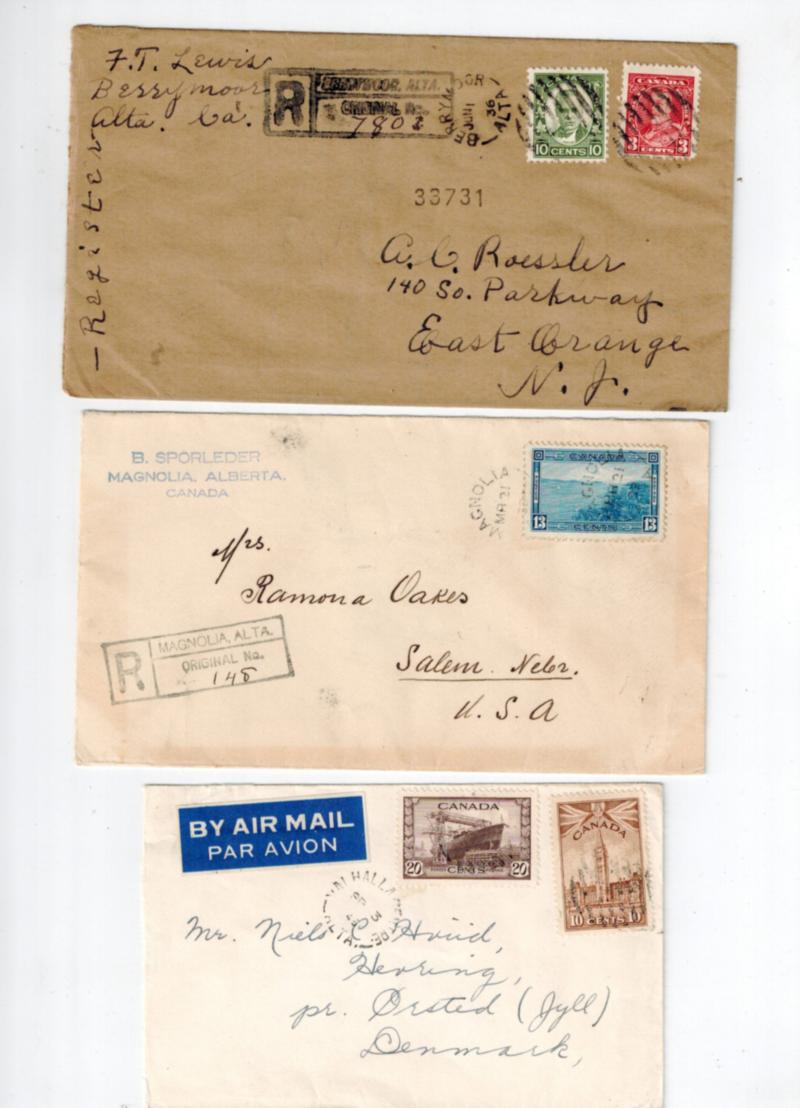 F.T. Lewis
Berrymoor
Alta. Ca.
—Register—
R
BERRYMOOR, ALTA.
ORIGINAL No.
7803
BERRYMOOR
ALTA
JUN 1
36
10 CENTS 10
CANADA
3 CENTS 3
33731
A. C. Roessler
140 So. Parkway
East Orange
N. J.
B. SPORLEDER
MAGNOLIA, ALBERTA.
CANADA
MAGNOLIA
MR 21
CANADA
13 CENTS 13
Mrs.
Ramona Oakes
Salem. Nebr.
U. S. A
R
MAGNOLIA, ALTA.
ORIGINAL No.
148
BY AIR MAIL
PAR AVION
CANADA
20 CENTS 20
CANADA
10 CENTS 10
VALHALLA CENTRE
Mr. Niels C Hviid,
Hevring,
pr. Ørsted (Jyll)
Denmark,